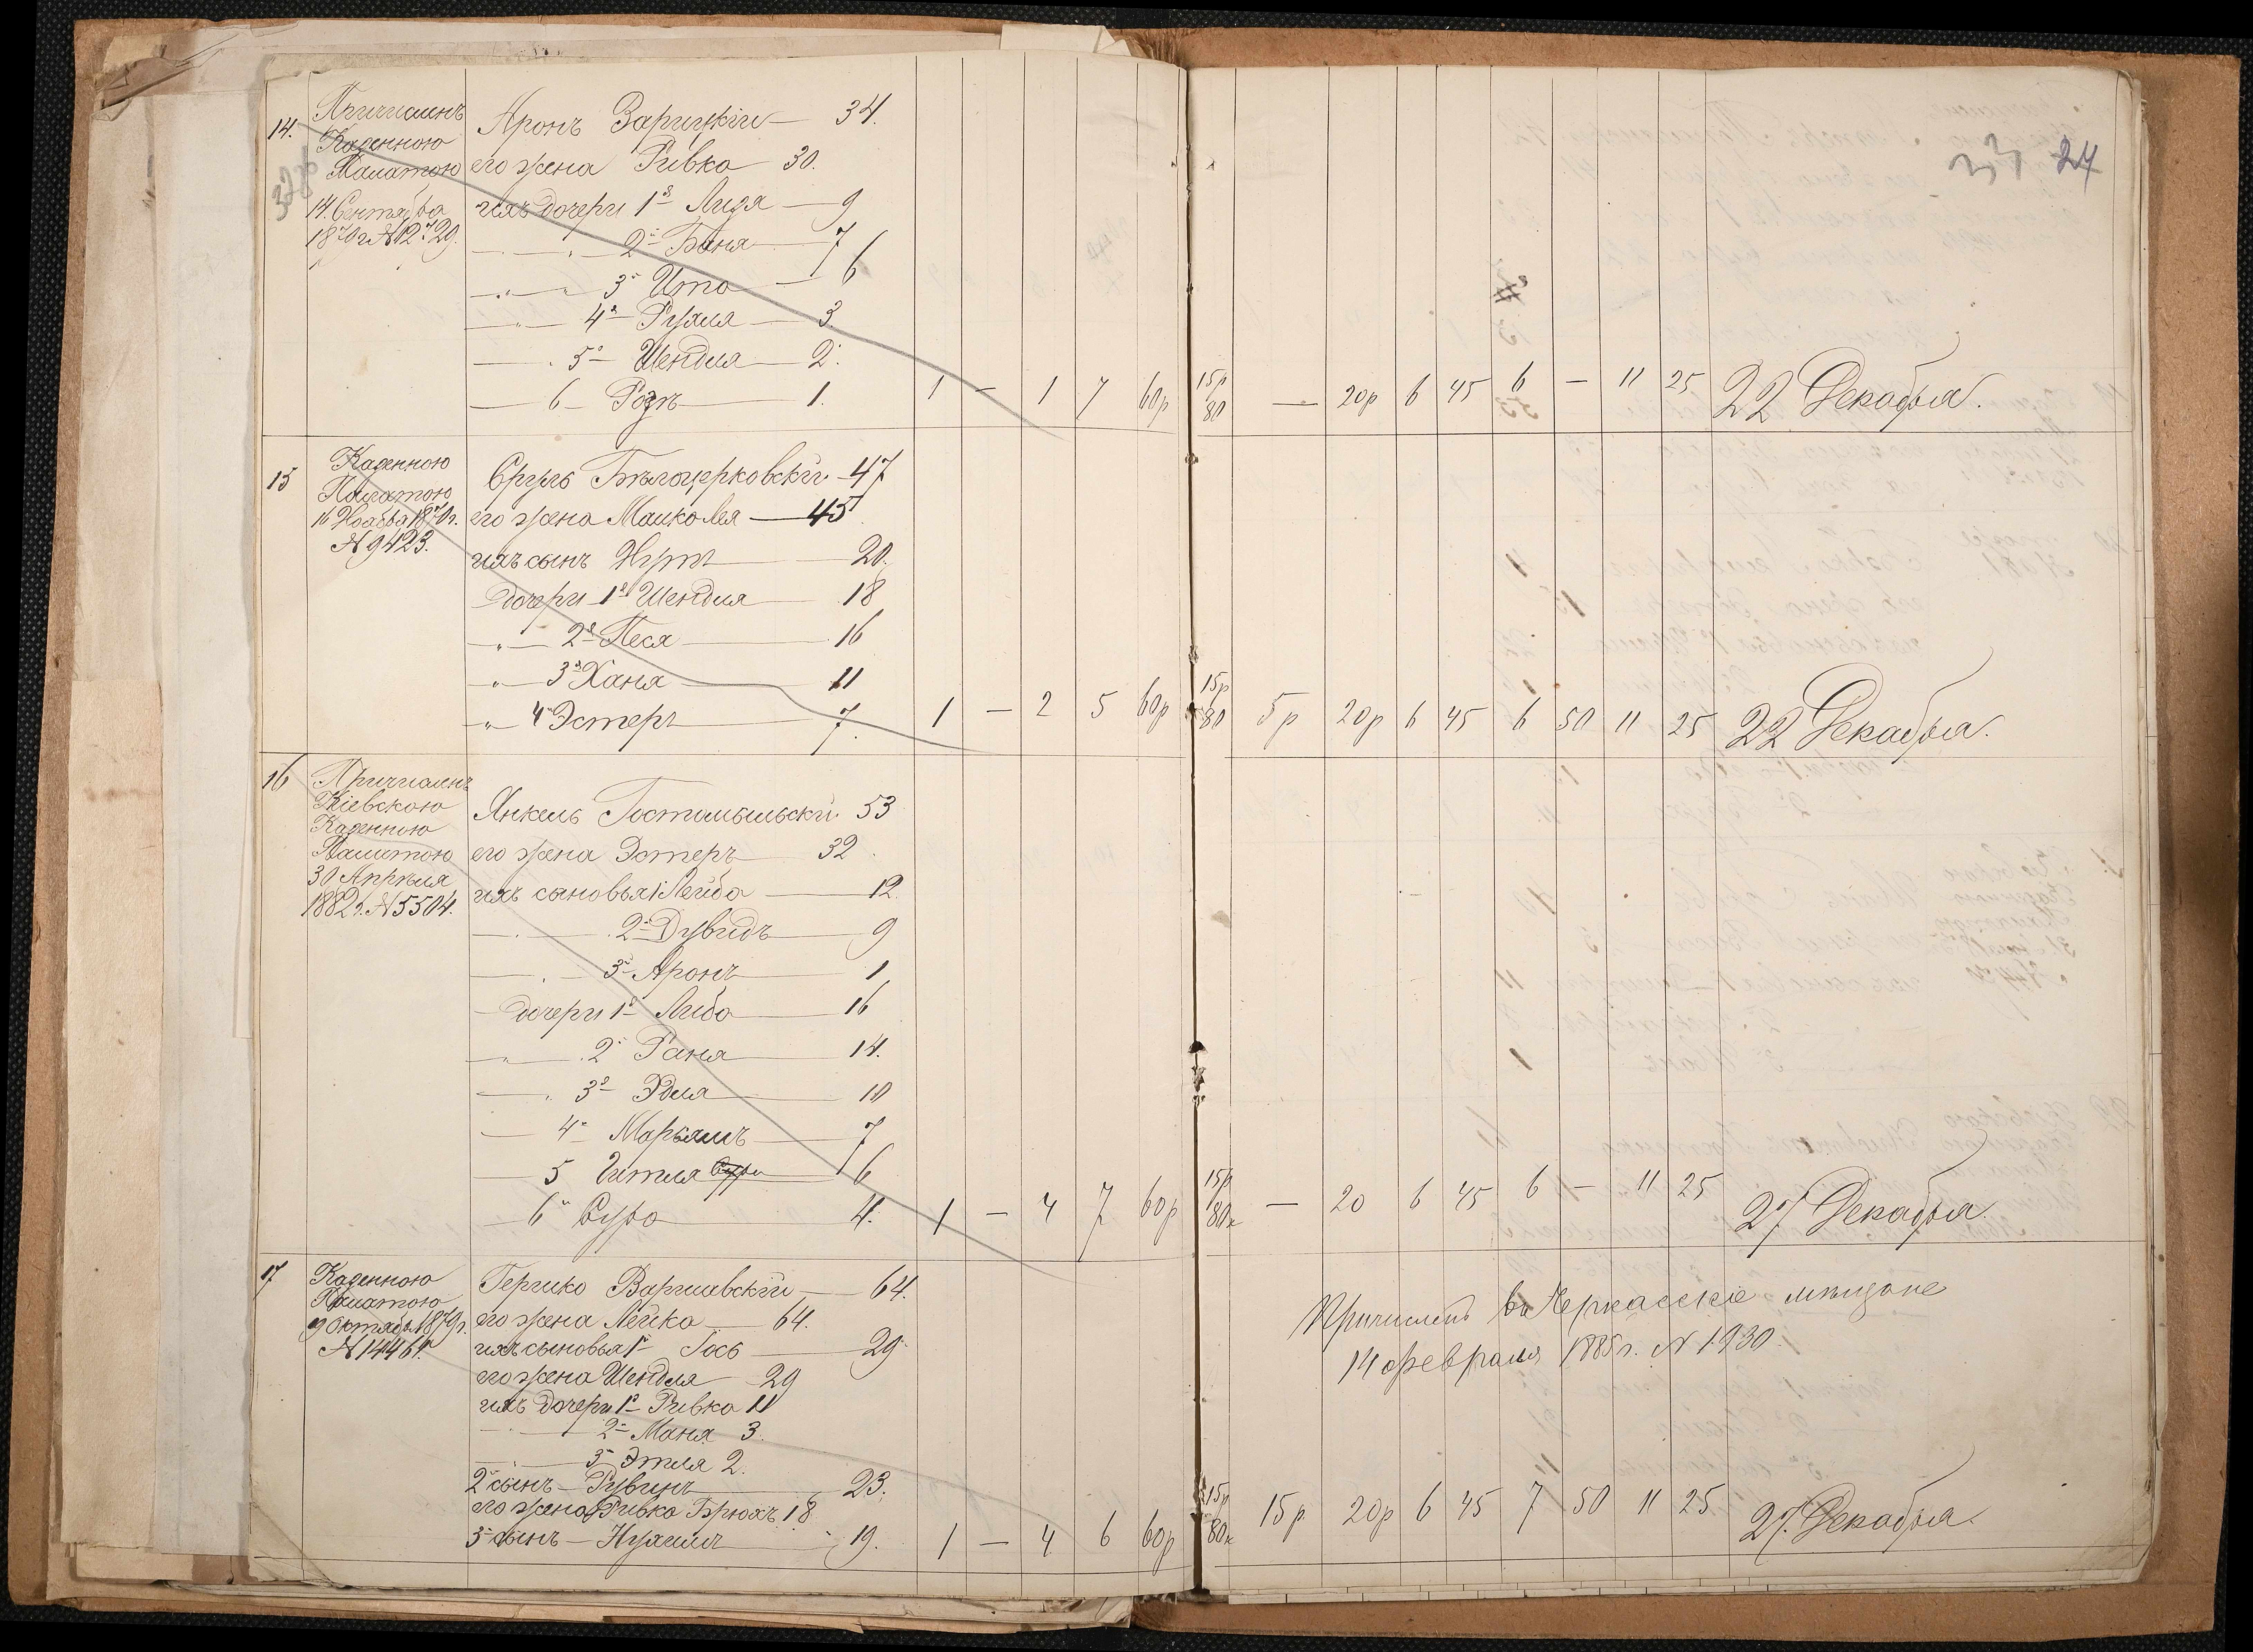 33 27
14.
Причисленъ
Казенною
Палатою
14. Сентября
1870 г № 12729.
Аронъ Зарицкій — 34.
его жена Ривка — 30.
ихъ дочери 1я Лидя — 9
2я Баня — 7
3я Ита — 6
4я Рузля — 3.
5я Шендля — 2.
6 — Розъ — 1.
1 — 1 7 60р 15р 80 — 20р 6 45 6 — 11 25 22 Декабря.
15
Казенною
Палатою
16 Ноября 1870 г.
№ 9423.
Сруль Бѣлоцерковскій — 47
его жена Малка Лея — 45
ихъ сынъ Нута — 20.
дочери 1я Шендля — 18
2я Песя — 16
3я Хана — 11
4я Эстеръ — 7.
1 — 2 5 60р 15р 80 5р 20р 6 45 6 50 11 25 22 Декабря.
16
Причисленъ
Кіевскою
Казенною
Палатою
30 Апрѣля
1882 г. № 5504.
Янкель Гостомыльскій 53
его жена Эстеръ — 32
ихъ сыновья 1 Лейба — 12
2й Дувидъ — 9
3й Аронъ — 1
дочери 1я Либа — 16
2я Раня — 14.
3я Эдля — 10
4я Марьямъ — 7
5 Гитля — 6
6я Сура — 4.
1 — 4 7 60р 15р 80к — 20 6 45 6 — 11 25 27 Декабря.
17
Казенною
Палатою
9 Октября 1879 г.
№ 14461.
Гершко Варшавскій — 64.
его жена Лейка — 64.
ихъ сыновья 1й Іось — 29
его жена Шендля — 29
ихъ дочери 1я Ривка 11
2я Маня 3.
3я Этля 2.
2й сынъ — Рувинъ — 23.
его жена Ривка Брюхъ 18
3й сынъ — Нухимъ — 19.
Причисленъ въ Черкасскіе мѣщане
14 февраля 1885 г. № 1930.
1 — 4 6 60р 15р 80к 15р 20р 6 45 7 50 11 25 27. Декабря.